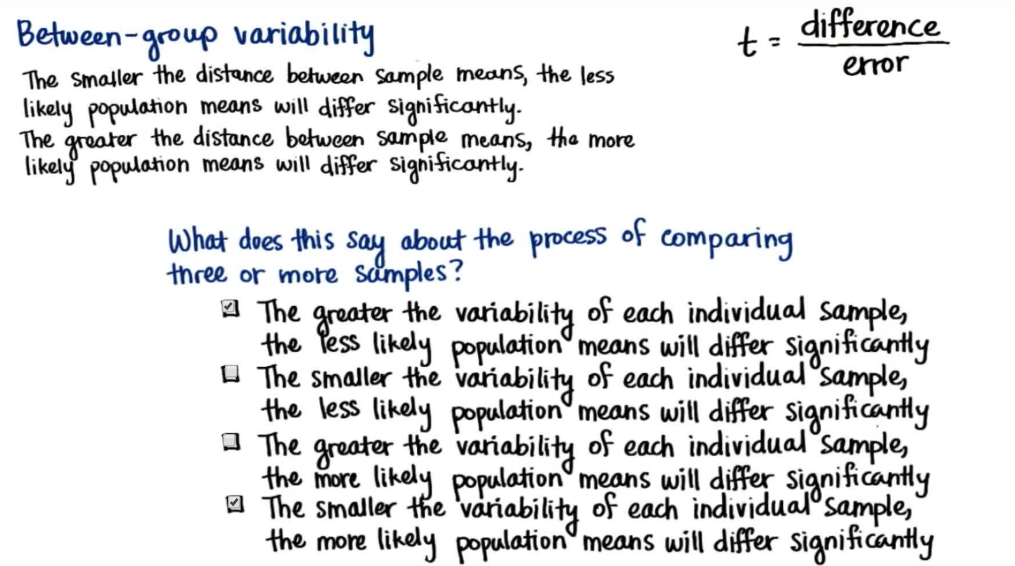 Between-group variability
t = difference
error
The smaller the distance between sample means, the less
likely population means will differ significantly.
The greater the distance between sample means, the more
likely population means will differ significantly.
What does this say about the process of comparing
three or more samples?
The greater the variability of each individual sample,
the less likely population means will differ significantly
The smaller the variability of each individual sample,
the less likely population means will differ significantly
The greater the variability of each individual sample,
the more likely population means will differ significantly
The smaller the variability of each individual sample,
the more likely population means will differ significantly